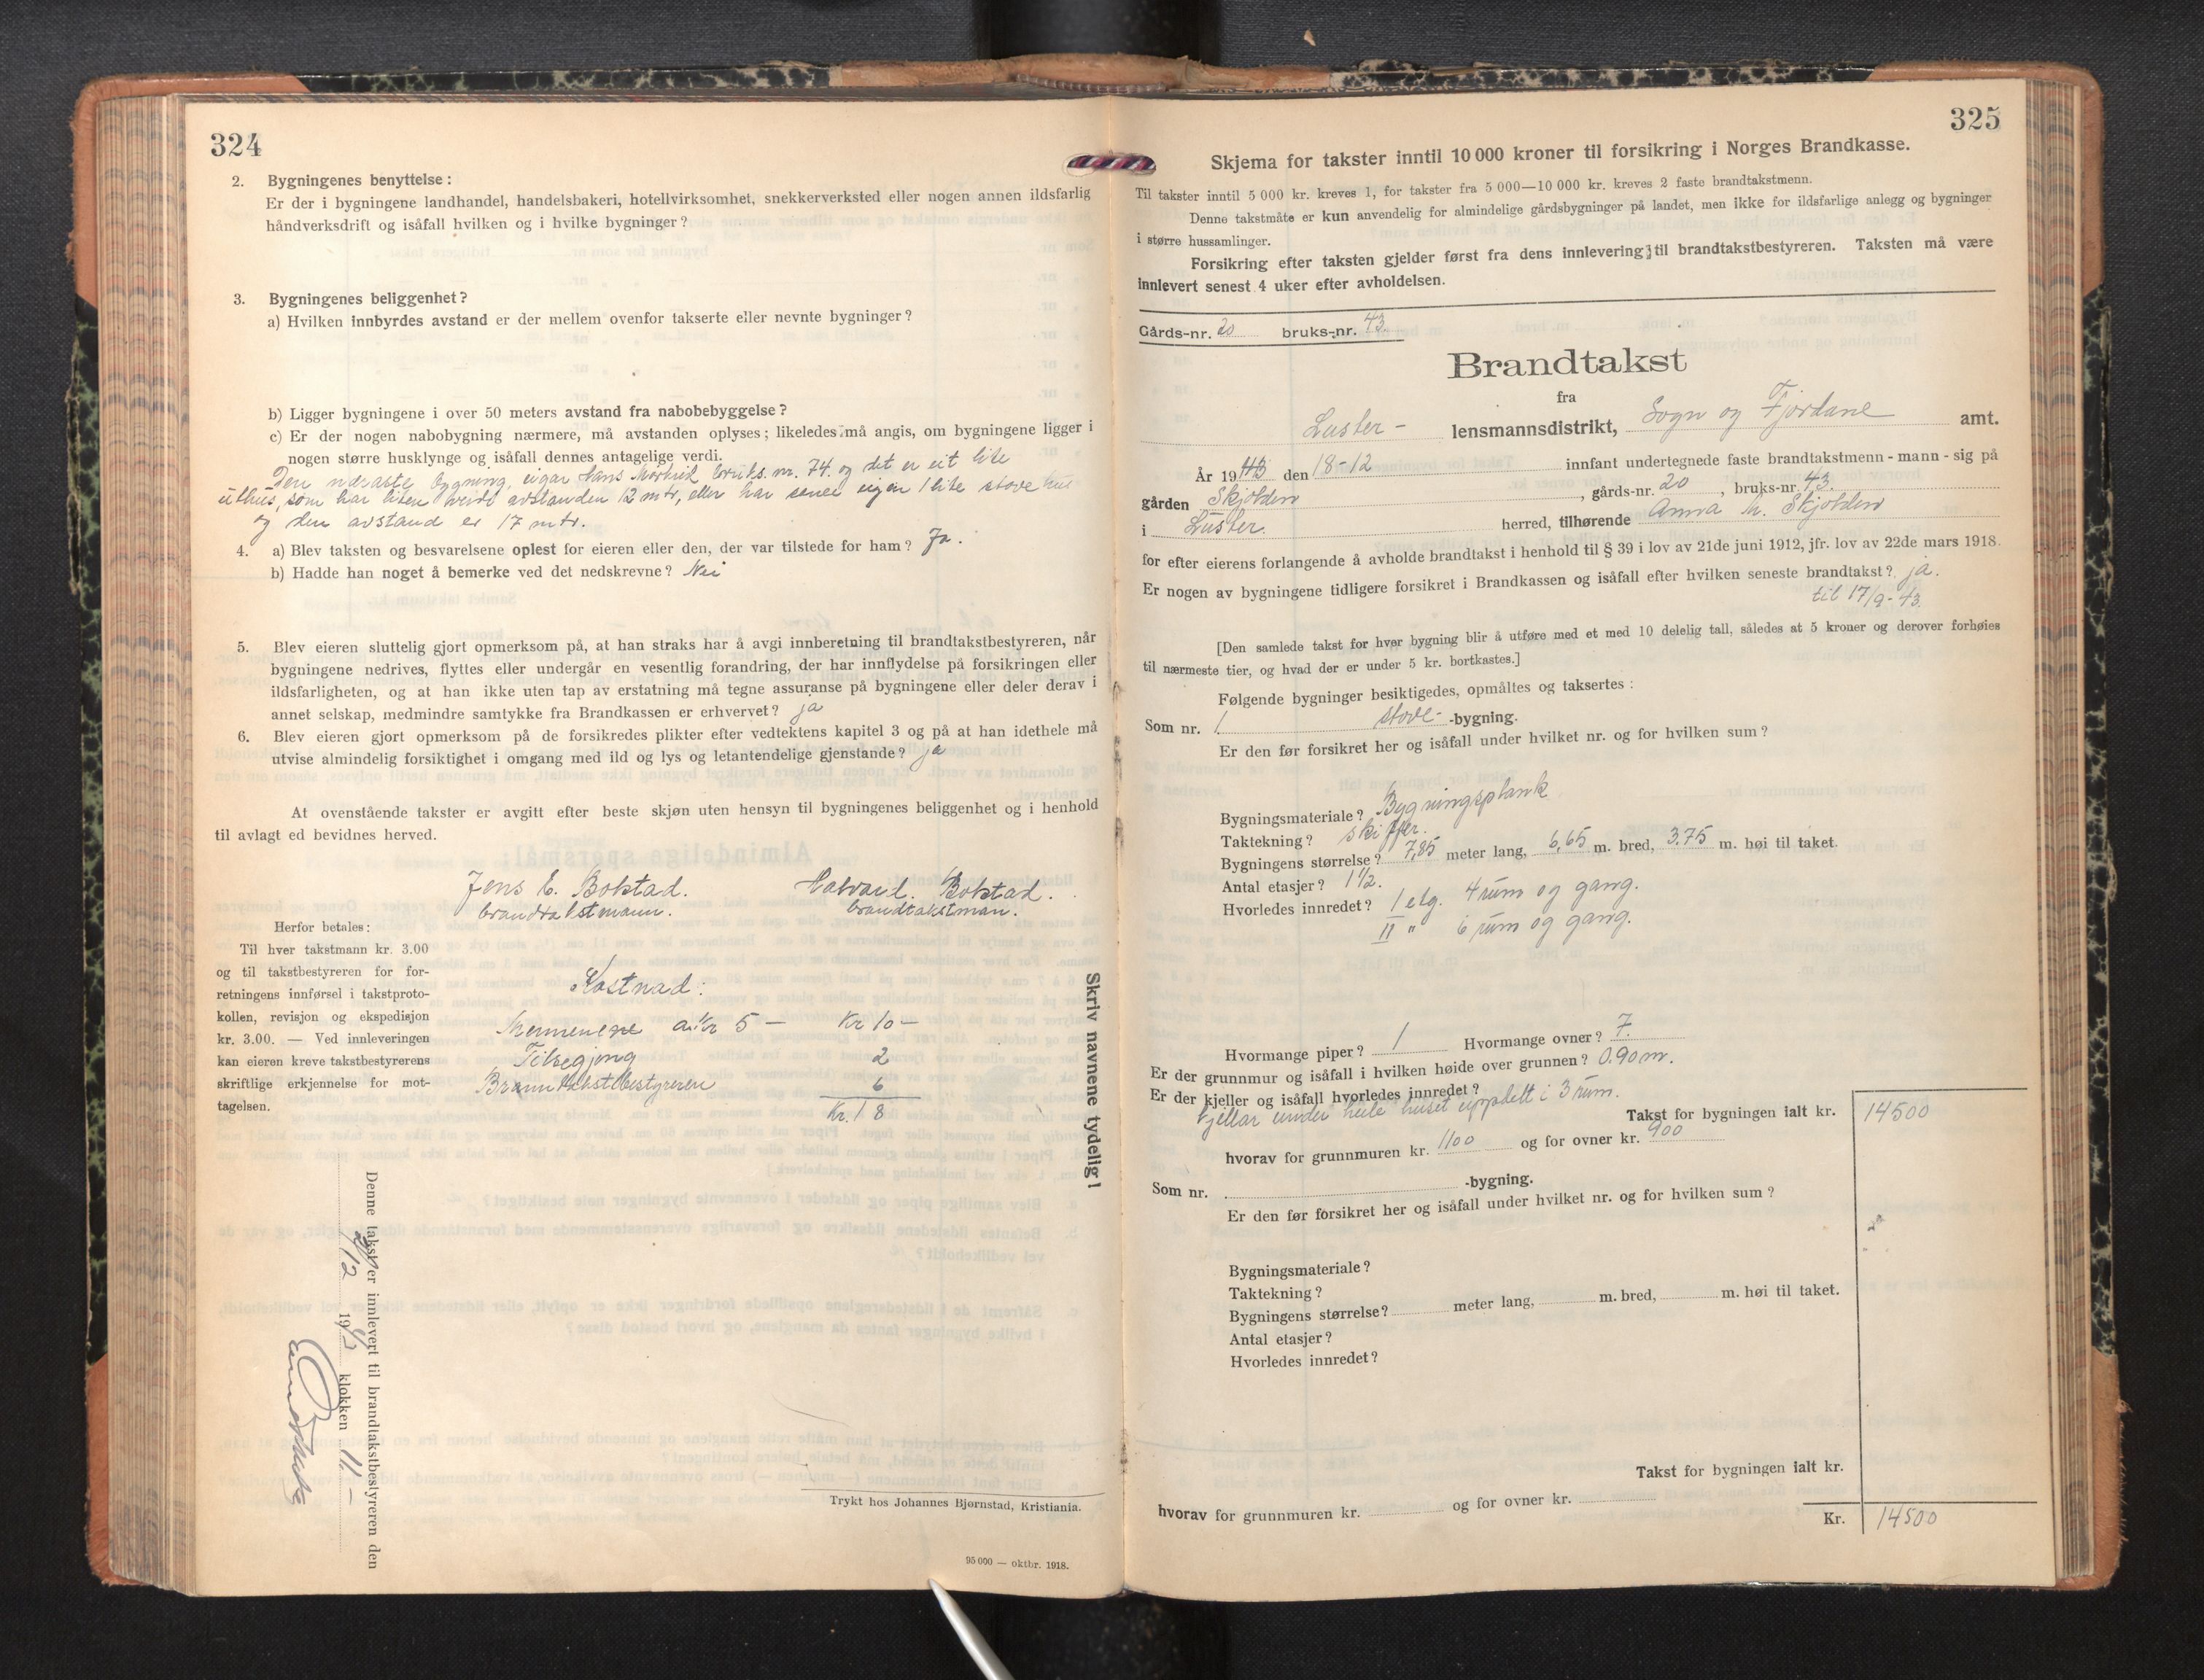 324
2. Bygningenes benyttelse:
Er der i bygningene landhandel, handelsbakeri, hotellvirksomhet, snekkerverksted eller nogen annen ildsfarlig
håndverksdrift og isåfall hvilken og i hvilke bygninger?
3. Bygningenes beliggenhet?
a) Hvilken innbyrdes avstand er der mellem ovenfor takserte eller nevnte bygninger?
b) Ligger bygningene i over 50 meters avstand fra nabobebyggelse?
c) Er der nogen nabobygning nærmere, må avstanden oplyses; likeledes må angis, om bygningene ligger i
nogen større husklynge og isåfall dennes antagelige verdi.
Den næraste bygning, eigar Hans bruks.nr. 74. og det er eit lite
uthus, som har liten verdi avstanden 12 mtr, eller har eigen 1 lite stove
og den avstand er 17 mtr.
4. a) Blev taksten og besvarelsene oplest for eieren eller den, der var tilstede for ham? Ja.
b) Hadde han noget å bemerke ved det nedskrevne? Nei
5. Blev eieren sluttelig gjort opmerksom på, at han straks har å avgi innberetning til brandtakstbestyreren, når
bygningene nedrives, flyttes eller undergår en vesentlig forandring, der har innflydelse på forsikringen eller
ildsfarligheten, og at han ikke uten tap av erstatning må tegne assuranse på bygningene eller deler derav i
annet selskap, medmindre samtykke fra Brandkassen er erhvervet? ja
6. Blev eieren gjort opmerksom på de forsikredes plikter efter vedtektens kapitel 3 og på at han idethele må
utvise almindelig forsiktighet i omgang med ild og lys og letantendelige gjenstande? ja
At ovenstående takster er avgitt efter beste skjøn uten hensyn til bygningenes beliggenhet og i henhold
til avlagt ed bevidnes herved.
Jens E. Bolstad. Halvard. Bolstad.
brandtakstmann. brandtakstman.
Herfor betales:
Til hver takstmann kr. 3.00
og til takstbestyreren for for-
retningens innførsel i takstproto-
kollen, revisjon og ekspedisjon
kr. 3.00. — Ved innleveringen
kan eieren kreve takstbestyrerens
skriftlige erkjennelse for mot-
tagelsen.
Kostnad:
a. kr 5 - Kr 10 -
2
Branntakstbestyreren 6
Kr. 18
Skriv navnene tydelig!
Denne takst er innlevert til brandtakstbestyreren den
/12 1943 klokken 11 -
Trykt hos Johannes Bjørnstad, Kristiania.
95 000 — oktbr. 1918.
325
Skjema for takster inntil 10 000 kroner til forsikring i Norges Brandkasse.
Til takster inntil 5 000 kr. kreves 1, for takster fra 5 000—10 000 kr. kreves 2 faste brandtakstmenn.
Denne takstmåte er kun anvendelig for almindelige gårdsbygninger på landet, men ikke for ildsfarlige anlegg og bygninger
i større hussamlinger.
Forsikring efter taksten gjelder først fra dens innlevering til brandtakstbestyreren. Taksten må være
innlevert senest 4 uker efter avholdelsen.
Gårds-nr. 20 bruks-nr. 43
Brandtakst
fra
Luster - lensmannsdistrikt, Sogn og Fjordane amt.
År 1943 den 18-12 innfant undertegnede faste brandtakstmenn - mann - sig på
gården Skjolden, gårds-nr. 20, bruks-nr. 43.
i Luster. herred, tilhørende Anna M. Skjolden
for efter eierens forlangende å avholde brandtakst i henhold til § 39 i lov av 21de juni 1912, jfr. lov av 22de mars 1918.
Er nogen av bygningene tidligere forsikret i Brandkassen og isåfall efter hvilken seneste brandtakst? ja.
til 17/9 - 43.
[Den samlede takst for hver bygning blir å utføre med et med 10 delelig tall, således at 5 kroner og derover forhøies
til nærmeste tier, og hvad der er under 5 kr. bortkastes.]
Følgende bygninger besiktigedes, opmåltes og taksertes:
Som nr. 1 stove- -bygning.
Er den før forsikret her og isåfall under hvilket nr. og for hvilken sum?
Bygningsmateriale? Bygningsplank
Taktekning? skiffer.
Bygningens størrelse? 7,85 meter lang, 6,65 m. bred, 3.75 m. høi til taket.
Antal etasjer? 1 1/2.
Hvorledes innredet? I etg. 4 rum og gang.
II " 6 rum og gang.
Hvormange piper? 1 Hvormange ovner? 7.
Er der grunnmur og isåfall i hvilken høide over grunnen? 0.90 m.
Er der kjeller og isåfall hvorledes innredet?
Kjellar under heile huset uppdelt i 3 rum.
Takst for bygningen ialt kr. 14500
hvorav for grunnmuren kr. 1100 og for ovner kr. 900
Som nr. -bygning.
Er den før forsikret her og isåfall under hvilket nr. og for hvilken sum?
Bygningsmateriale?
Taktekning?
Bygningens størrelse? meter lang, m. bred, m. høi til taket.
Antal etasjer?
Hvorledes innredet?
Takst for bygningen ialt kr.
hvorav for grunnmuren kr. og for ovner kr.
Kr. 14500